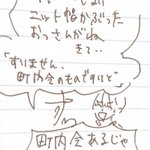 ニット帽かぶった
おっさんがね
きて‥
「すいません、
町内会のものですけど」
町内会あるじゃ